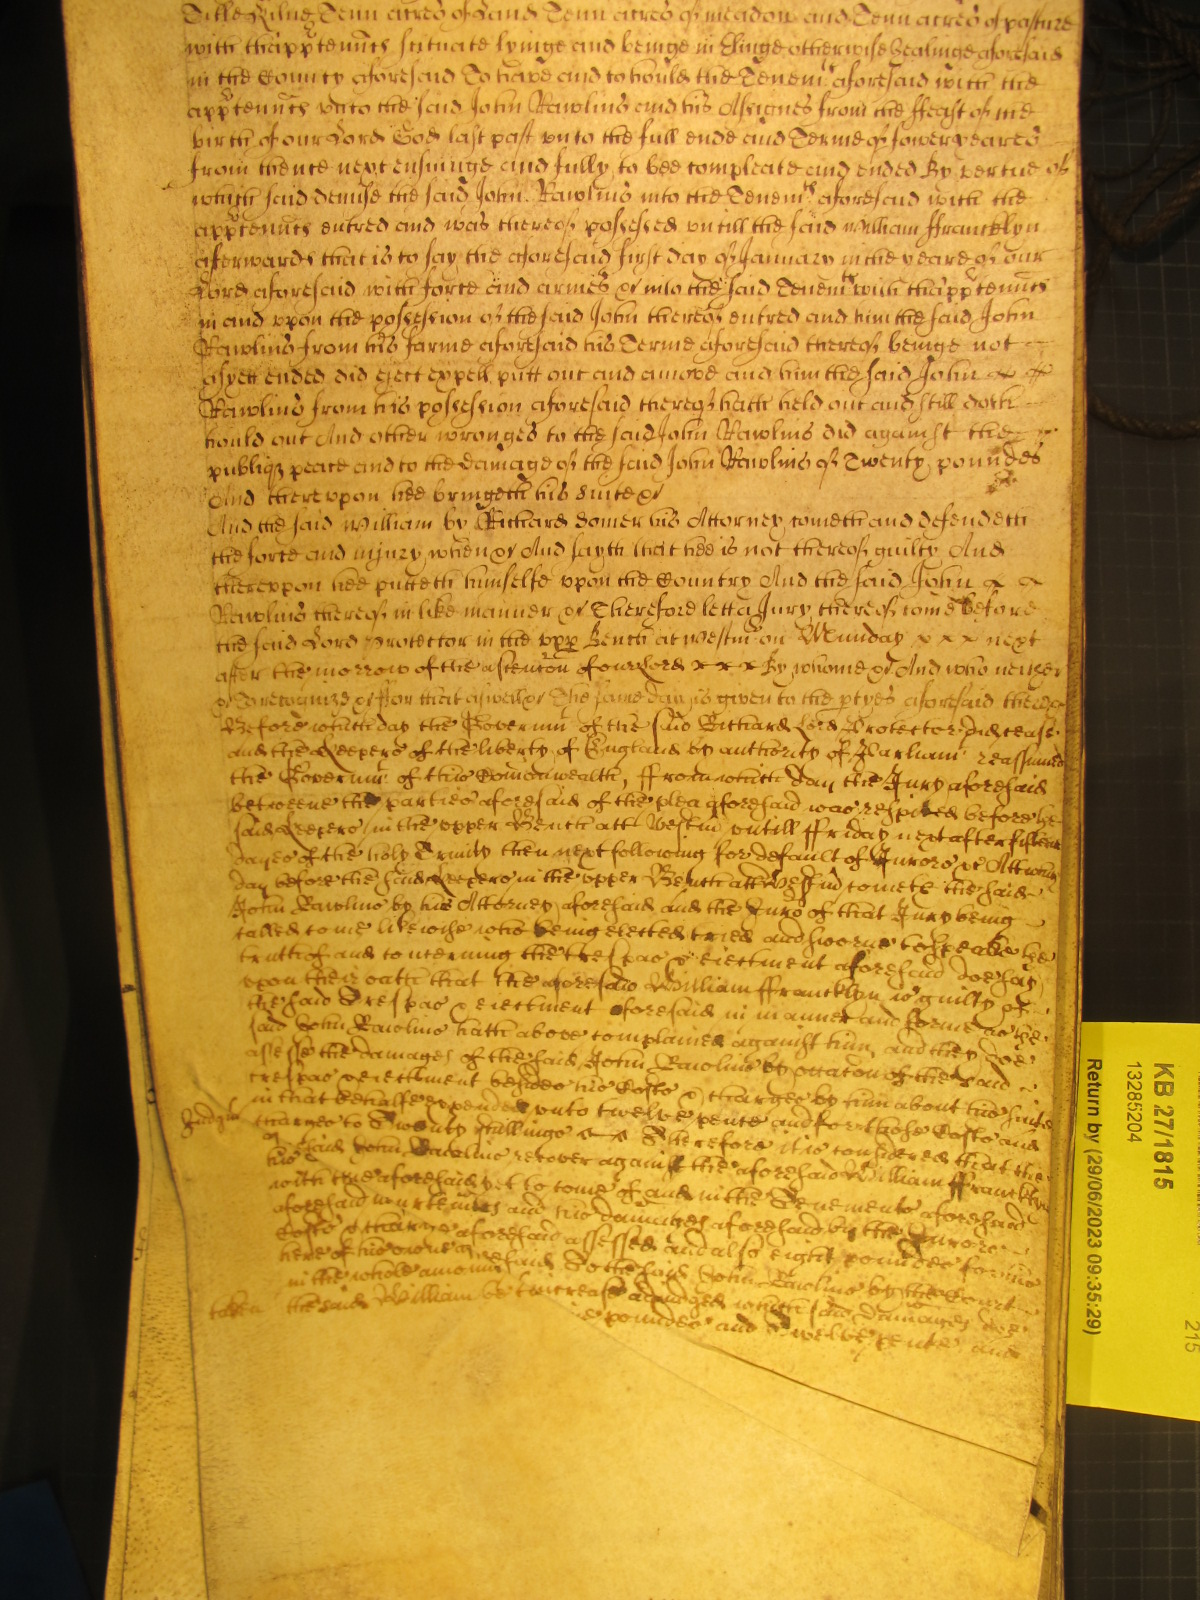 Tenn acres of Land Tenn acres of meadow and Tenn acres of pasture
with thapptenncs scituate lyinge and beinge in Elinge otherwise Zealinge aforesaid
in the County aforesaid To have and to hould the Tenemts aforesaid with the
apptenncs unto the said John Rawlins and his Assignes from the ffeast of the
birth of our Lord God last past unto the full ende and Terme of fower yeares
from thence next ensuinge and fully to bee compleate and ended By vertue of
which said demise the said John Rawlins into the Tenemts aforesaid with the
apptenncs entred and was thereof possessed untill the said William ffrancklyn
aferwards that is to say the aforesaid first day of January in the yeare of our
Lord aforesaid with force and armes &c into the said Tenemts with thapptenncs
in and upon the possession of the said John thereof entred and him the said John
Rawlins from his farme aforesaid his Terme aforesaid thereof beinge not
as yett ended did eject expell putt out and amove and him the said John
Rawlins from his possession aforesaid thereof hath held out and still doth
hould out And other wronges to the said John Rawlins did against the
publiq peace and to the damage of the said John Rawlins of Twenty poundes
And thereupon hee bringeth his suite &c
And the said William by Richard Domer his Attorney cometh and defendeth
the force and injury when &c And sayth that hee is not thereof guilty And
thereuppon hee putteth himselfe upon the Country And the said John
Rawlins thereof in like manner &c Therefore lett a Jury thereof come before
the said Lord Protector in the upp Bench at Westm on Munday x x x next
after the morrow of the ascencon of our Lord x x x By whome &c And who neither
&c To recognize &c For that aswell &c The same day is given to the ptyes aforesaid there &c
Before which day the Governmt of the said Richard Lord Protector did cease
and the Keepers of the liberty of England by authority of Parliamt reassumed
the Governmt of this Comonwealth, ffrom which day the Jury aforesaid
betweene the parties aforesaid of the plea aforesaid was respited before the
said Keepers in the upper Bench att Westm untill ffriday next after fifteen
dayes of the holy Trinity then next following for default of Jurors &c Att which
day before the said Keepers in the upper Bench att Westm cometh the said
John Rawlins by his Attorney aforesaid and the Jurors of that Jury being
called come likewise who being elected tried and sworne to speake the
truth of and concerning the trespas & eiectment aforesaid doe say
upon their oath that the aforesaid William ffrancklyn is guilty of
the said Trespas & eiectment aforesaid in manner and forme as the
said John Rawlins hath above complained against him, and they doe
assesse the damages of the said John Rawlins by occacon of the said
trespas & eiectment besides his Costs & charges by him about his suite
in that behalfe expended unto twelve pence and for those Costs and
Judgmt charges to Twenty shillings Therefore it is considered that the
said John Rawlins recover against the aforesaid William ffrancklyn
his with the aforesaid yet to come of and in the Tenements aforesaid
aforesaid and his damages aforesaid by the Jurors
Costs & charges aforesaid assessed and also eight poundes for his
here of his owne assent
in the whole amount
the said William be
said To the said John Rawlins by the Court
increase adiudged which said damages doe
poundes and Twelve pence and
taken
KB 27/1815
13285204
Return by (29/06/2023 09:35:29)
215